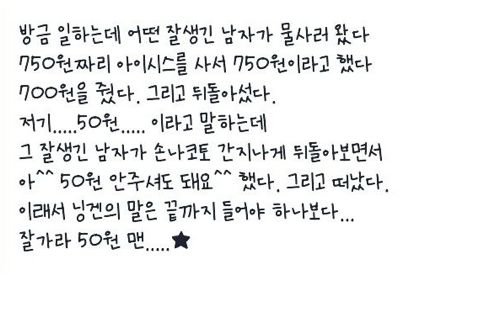 방금 일하는데 어떤 잘생긴 남자가 물사러 왔다
750원짜리 아이시스를 사서 750원이라고 했다
700원을 줬다. 그리고 뒤돌아섰다.
저기.....50원..... 이라고 말하는데
그 잘생긴 남자가 손나코토 간지나게 뒤돌아보면서
아^^ 50원 안주셔도 돼요^^ 했다. 그리고 떠났다.
이래서 닝겐의 말은 끝까지 들어야 하나보다...
잘가라 50원 맨.....★